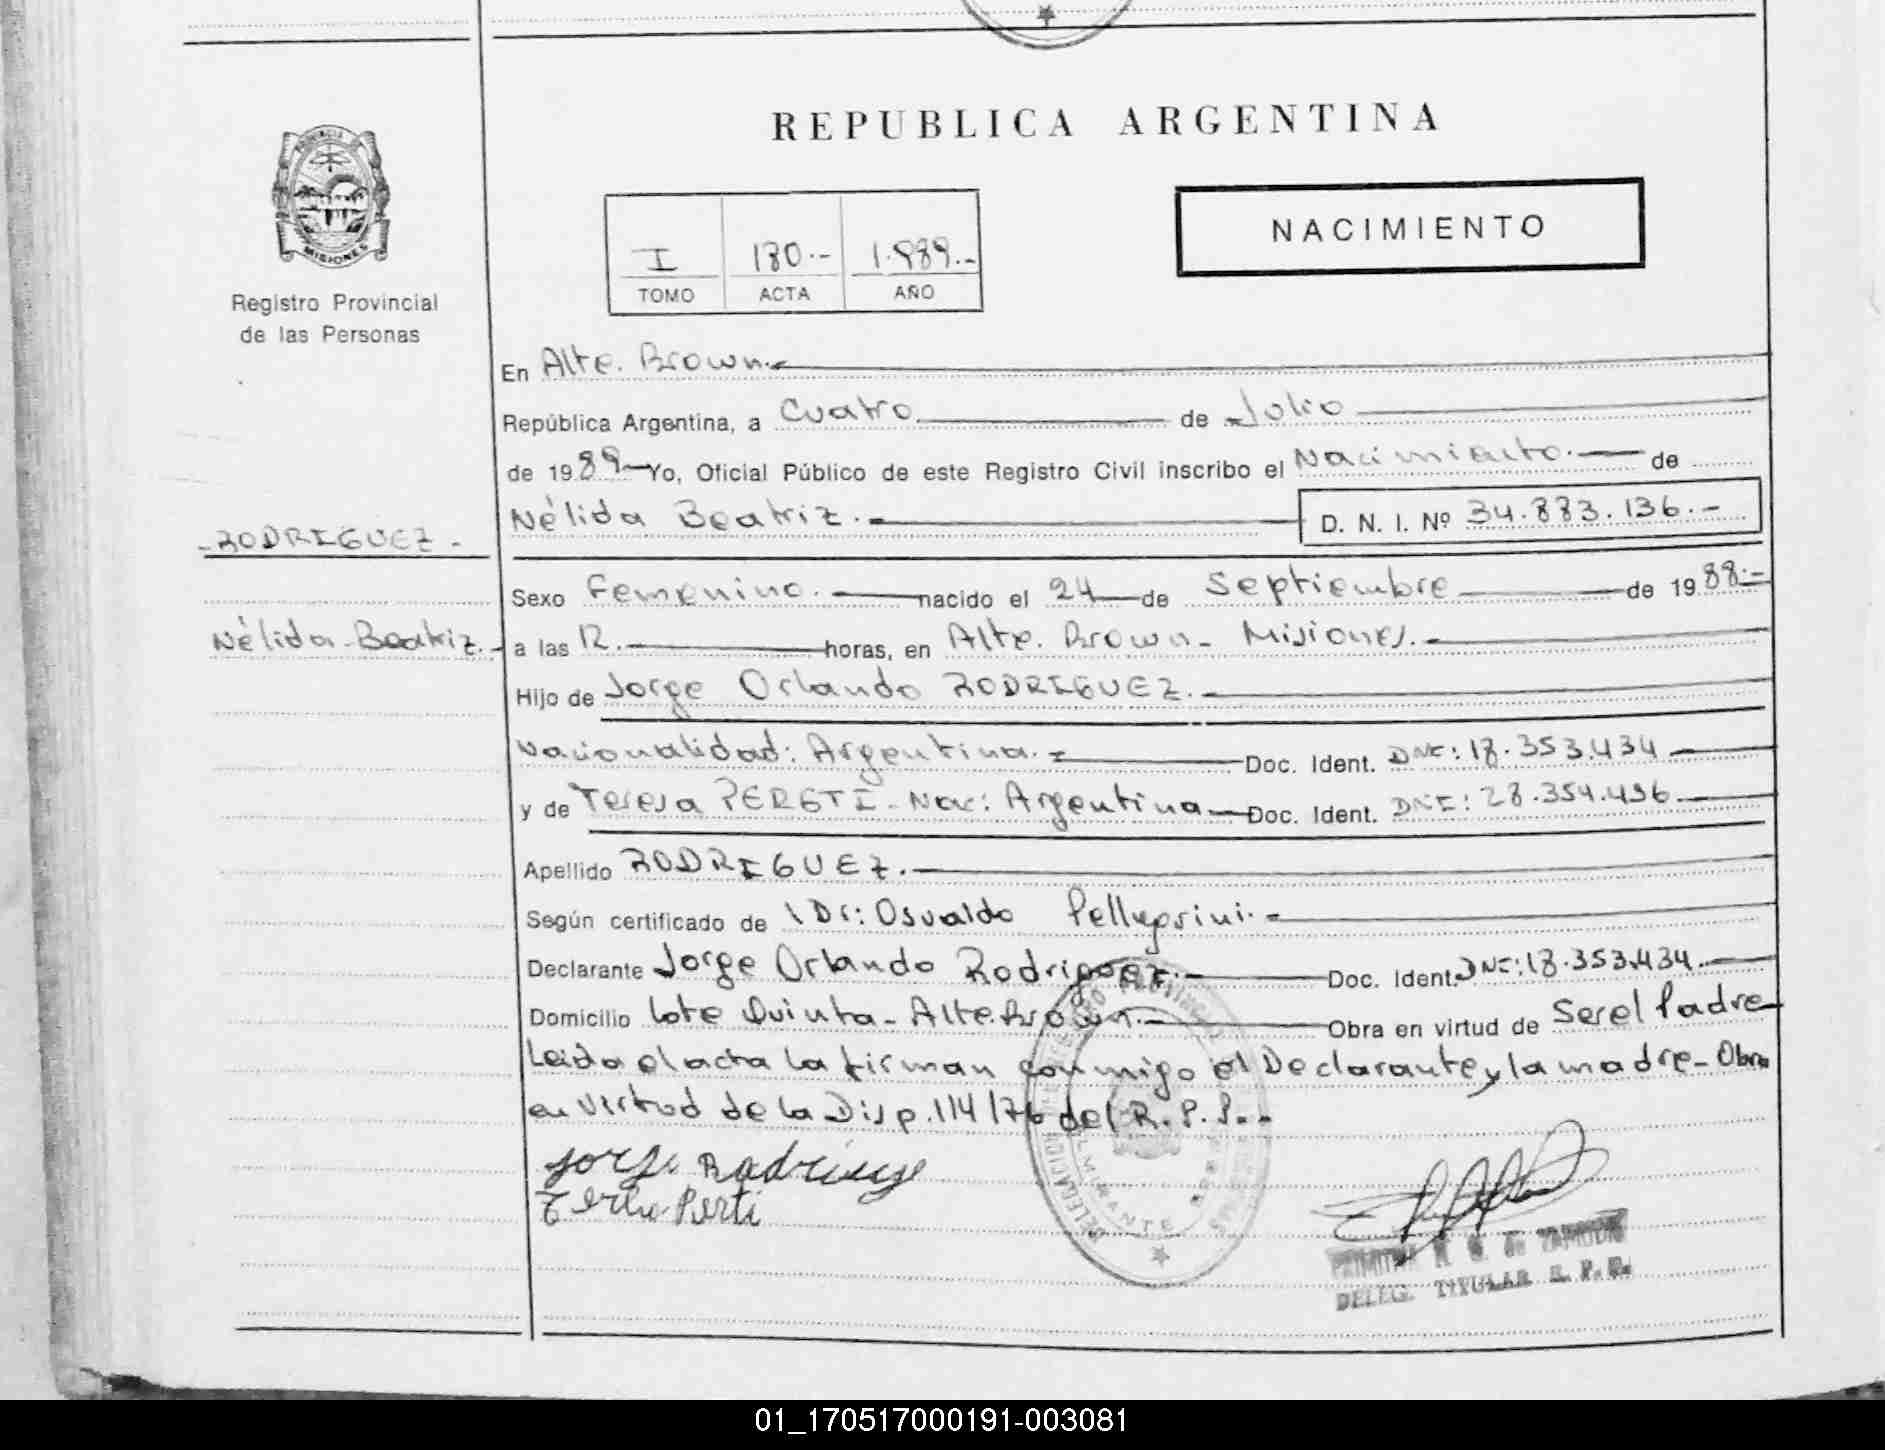 REPUBLICA ARGENTINA
NACIMIENTO
I 180.- 1.989.-
TOMO ACTA AÑO
PROVINCIA
MISIONES
Registro Provincial
de las Personas
En Alte. Brown.-
República Argentina, a Cuatro de Julio
de 1989 Yo, Oficial Público de este Registro Civil inscribo el Nacimiento.- de
Nélida Beatriz.- D. N. I. Nº 34.883.136.-
-RODRIGUEZ-
Sexo Femenino.- nacido el 24 de Septiembre de 1988.-
Nélida-Beatriz.-
a las 12.- horas, en Alte. Brown- Misiones.-
Hijo de Jorge Orlando RODRIGUEZ.-
Nacionalidad: Argentina.- Doc. Ident. DNI: 18.353.434
y de Teresa PERETI- Nac: Argentina Doc. Ident. DNI: 28.354.496
Apellido RODRIGUEZ.-
Según certificado de Dr: Osvaldo Pellegrini.-
Declarante Jorge Orlando Rodriguez.- Doc. Ident. DNI: 18.353.434
Domicilio Lote Quinta- Alte. Brown.- Obra en virtud de Ser el Padre
Leida el acta la firman conmigo el Declarante y la madre- Obra
en virtud de la Disp. 114/76 del R.P.P.-
DELEGACION
ALMIRANTE BROWN
DELEG. TITULAR R. P. P.
01_170517000191-003081